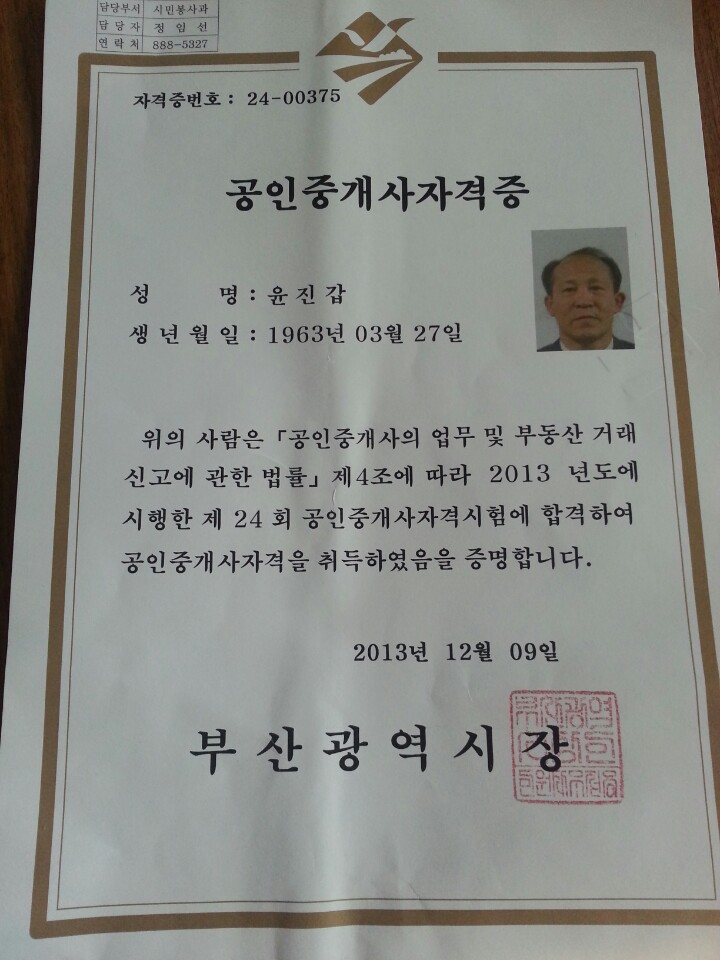 담당부서 시민봉사과
담 당 자 정 임 선
연 락 처 888-5327
자격증번호 : 24-00375
공인중개사자격증
성 명 : 윤 진 갑
생 년 월 일 : 1963년 03월 27일
위의 사람은 「공인중개사의 업무 및 부동산 거래
신고에 관한 법률」 제4조에 따라 2013 년도에
시행한 제 24 회 공인중개사자격시험에 합격하여
공인중개사자격을 취득하였음을 증명합니다.
2013년 12월 09일
부 산 광 역 시 장